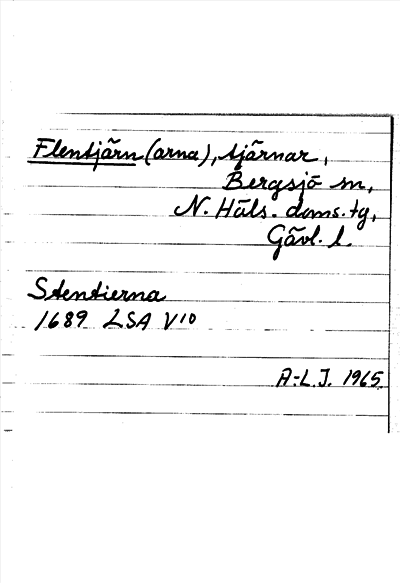 Flentjärn (arna), tjärnar,
Bergsjö sn,
N. Häls. doms. tg,
Gävl. l.
Stentierna
1689 LSA V10
A-L.J. 1965